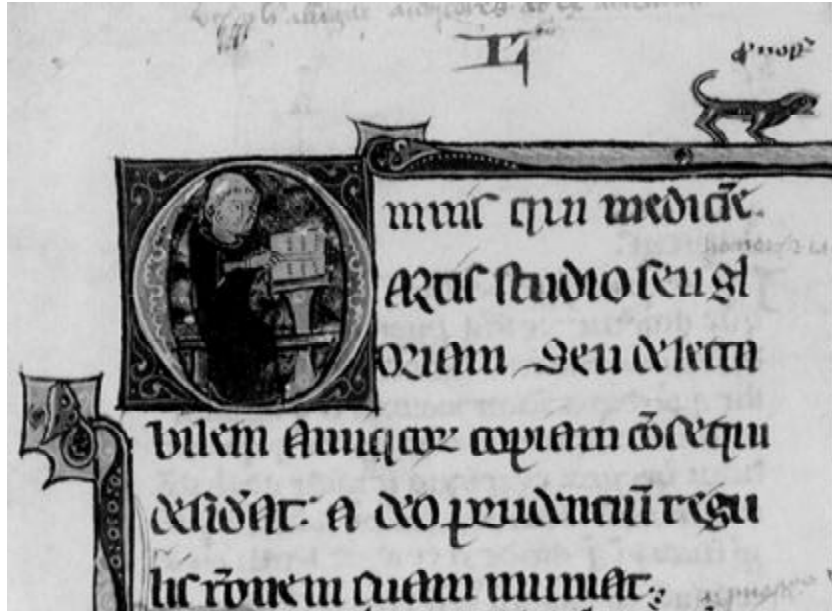 Omnis qui medicīe.
artis studio seu gl
oriam seu delecta
bilem amicoꝝ copiam cōsequi
desid̄at: a deo prudenciū regu
lis rōnem suam muniat: